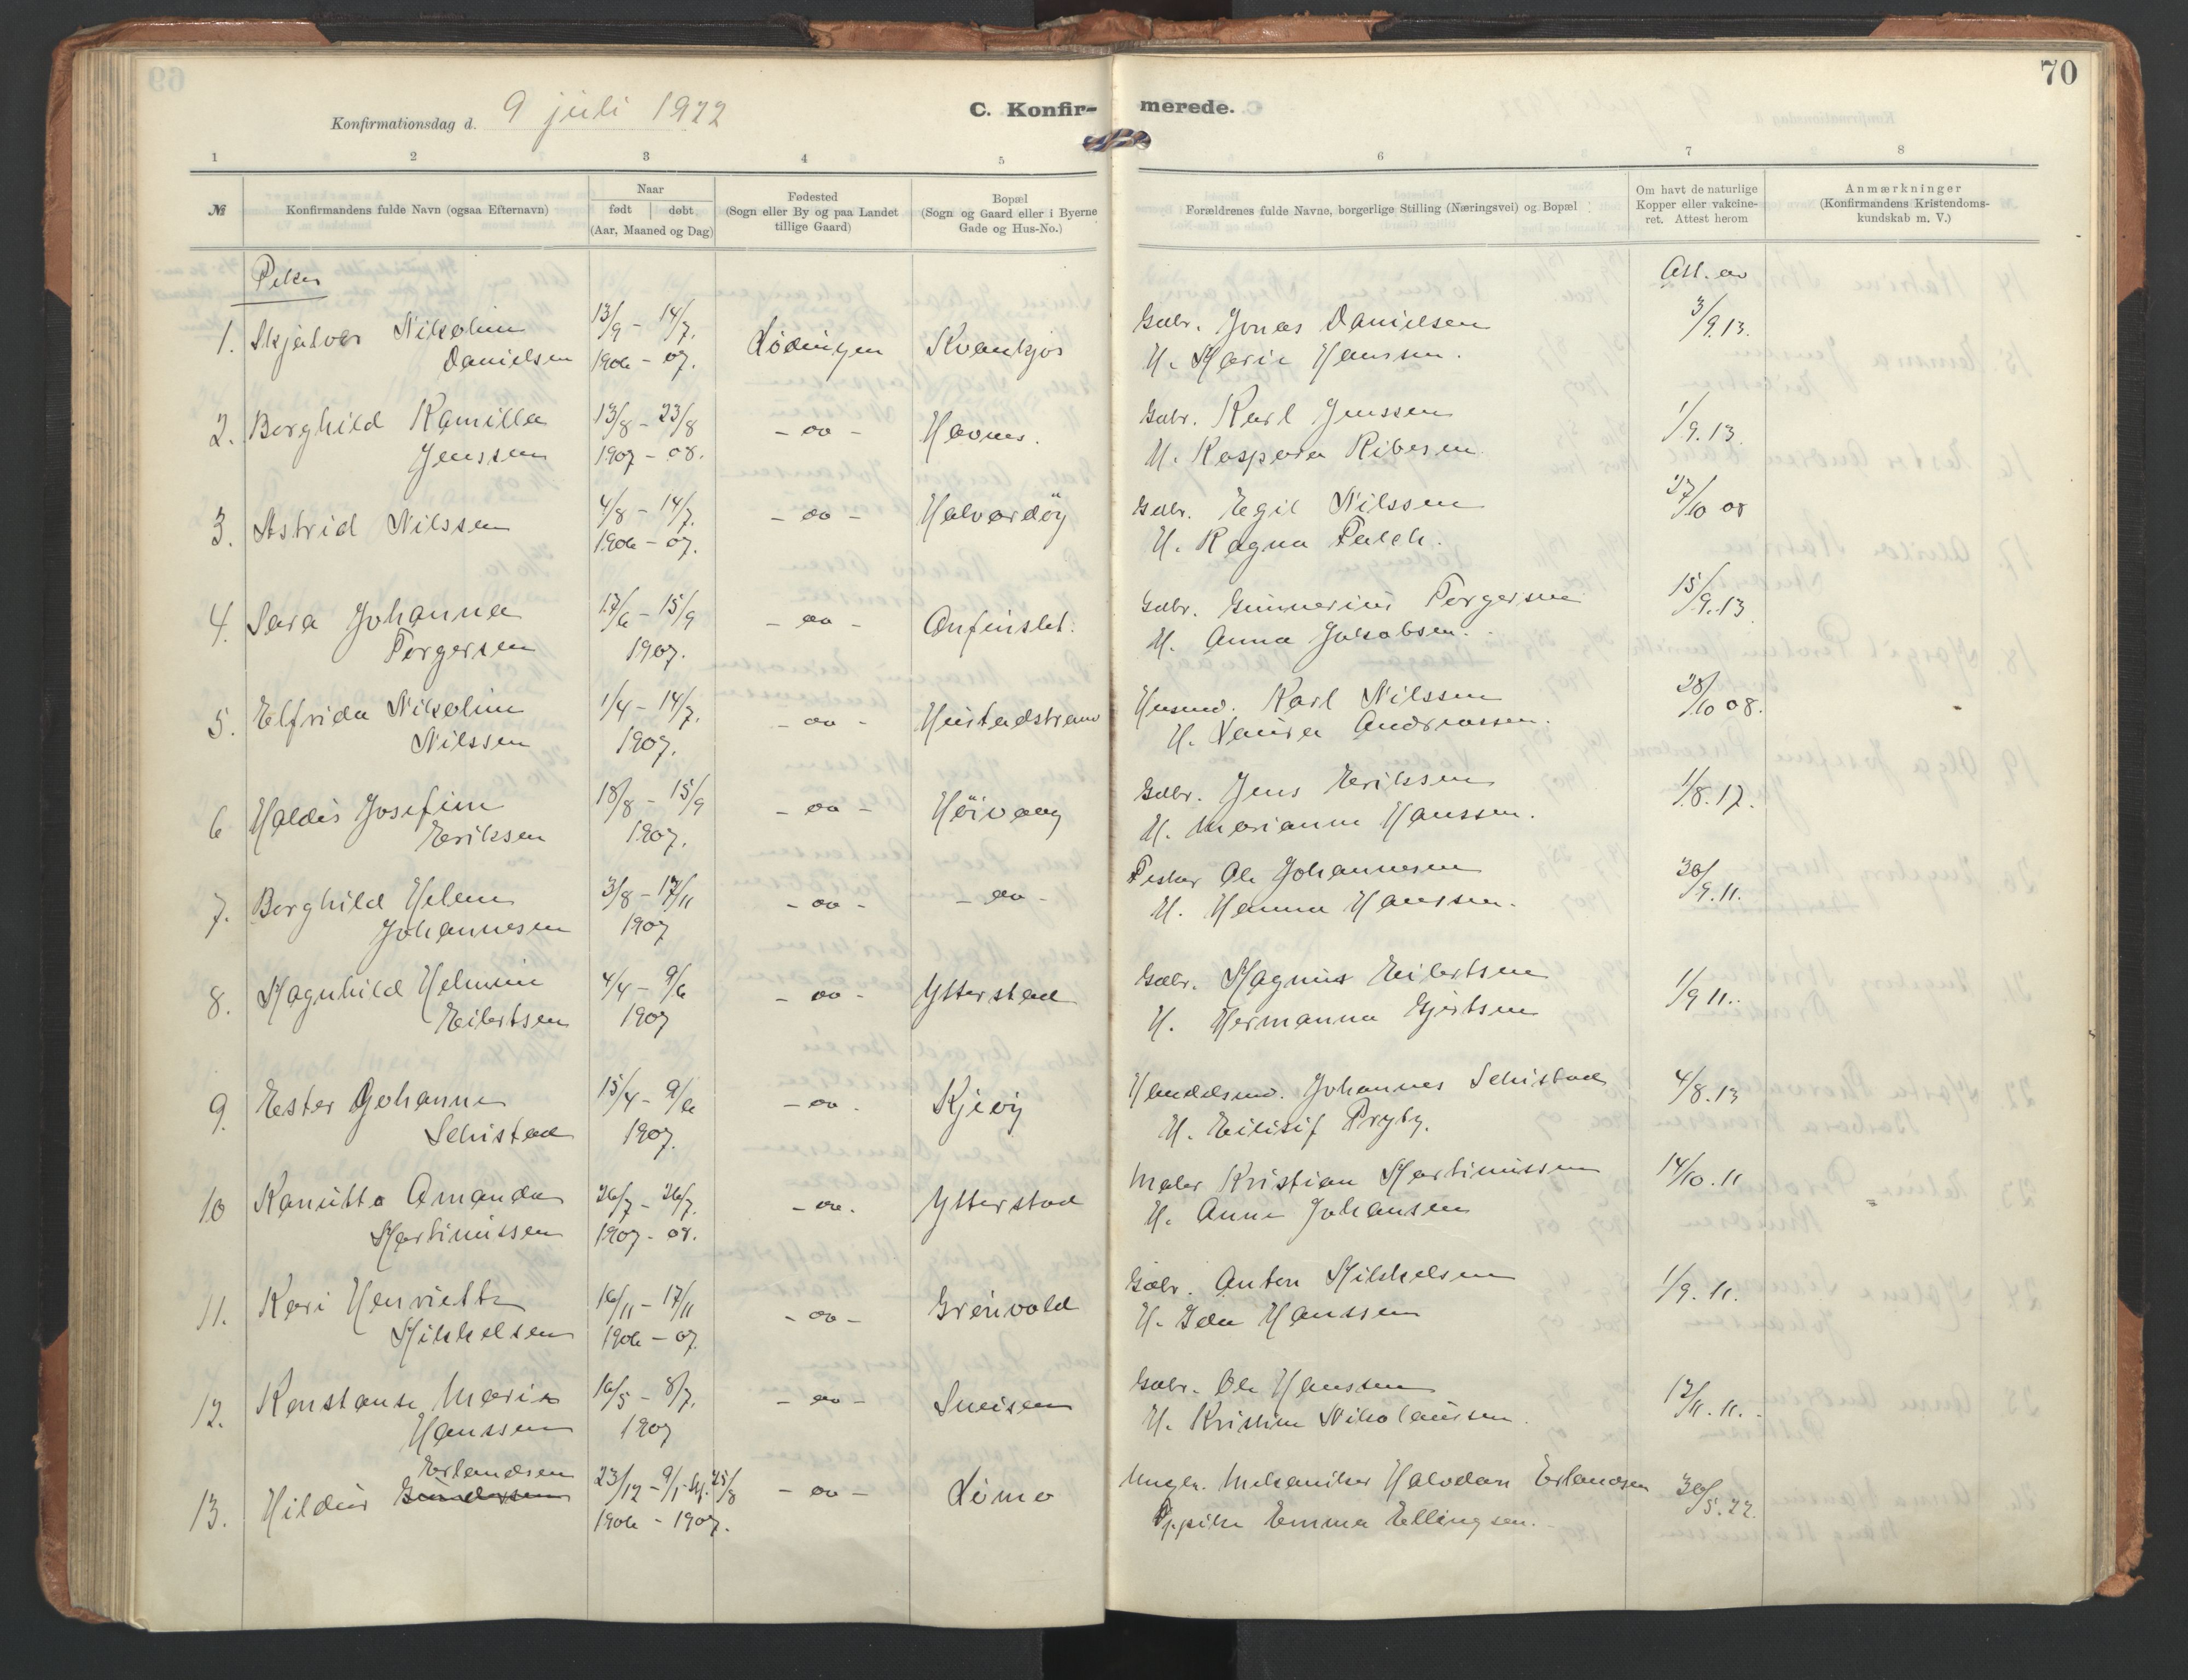 70
Konfirmationsdag d. 9 juli 1922
C. Konfir- merede.
1 2 3 4 5 6 7 8
№
Konfirmandens fulde Navn (ogsaa Efternavn)
Naar
født | døbt
(Aar, Maaned og Dag)
Fødested
(Sogn eller By og paa Landet
tillige Gaard)
Bopæl
(Sogn og Gaard eller i Byerne
Gade og Hus-No.)
Forældrenes fulde Navne, borgerlige Stilling (Næringsvei) og Bopæl
Om havt de naturlige
Kopper eller vakcine-
ret. Attest herom
Anmærkninger
(Konfirmandens Kristendoms-
kundskab m. V.)
Piker
Att. av
1. Skjalvor Nikoline 13/9 - 14/7. Lødingen Kvankjos Gbr. Jonas Danielsen 3/9.13.
Danielsen 1906 - 07. H. Marie Hanssen.
2. Borghild Kamilla 13/8 - 23/8 - oo - Havnes. Gbr. Karl Jenssen 1/9.13.
Jenssen 1907 - 08. H. Kaspara Ribesen
3. Astrid Nilssen 4/8 - 14/7. - oo - Halvardöy Gbr. Egil Nilssen 27/10 08
1906 - 07. H. Ragna Falch.
4. Sara Johanna 17/6 - 15/9 - oo - Anfinslet. Gbr. Gunnerius Torgersen 15/9.13
Torgersen 1907. H. Anna Jakobsen.
5. Elfrida Nikoline 1/4 - 14/7. - oo - Hustadstrand Husmd. Karl Nilssen 28/10 08.
Nilssen 1907. H. Andreassen.
6 Haldis Josefine 18/8 - 15/9 - oo - Höivaag Gbr. Jens Eriksen 1/8.17.
Eriksen 1907. H. Marianne Hanssen.
7. Borghild Helene 3/8 - 17/11 - oo - - oo - Fisker Ole Johannesen 30/9.11.
Johannesen 1907 H. Hanna Hanssen.
8. Magnhild Helmine 4/4 - 9/6 - oo - Ytterstad Gbr. Magnus Eilertsen 1/9 11.
Eilertsen 1907 H. Hermanna Gjertsen
9. Ester Johanne 15/4 - 9/6 - oo - Kjeöy Handelsmd. Johannes Schistad 4/8.13
Schistad 1907. H. Eilisif Pryty.
10 Kanutta Amanda 26/7 - 26/7. - oo - Ytterstad Maler Kristian Martinussen 14/10.11
Martinussen 1907 - 08. H. Anne Johansen
11. Kari Henriette 16/11 - 17/11 - oo - Grönvold Gbr. Anton Mikkelsen 1/9.11.
Mikkelsen 1906 - 07. H. Ida Hanssen
12. Konstanse Marie 16/5 - 8/7. - oo - Sneisen Gbr. Ole Hanssen 12/11.11.
Hanssen 1907 H. Kristine Nikolaisen.
Erlandsen
13. Hildur 23/12 - 9/1- 25/8 - oo - Lömo Ungk. Mekaniker Halvdan Erlandsen 30/5.22.
1906 - 1907. Ppike Emma Ellingsen.